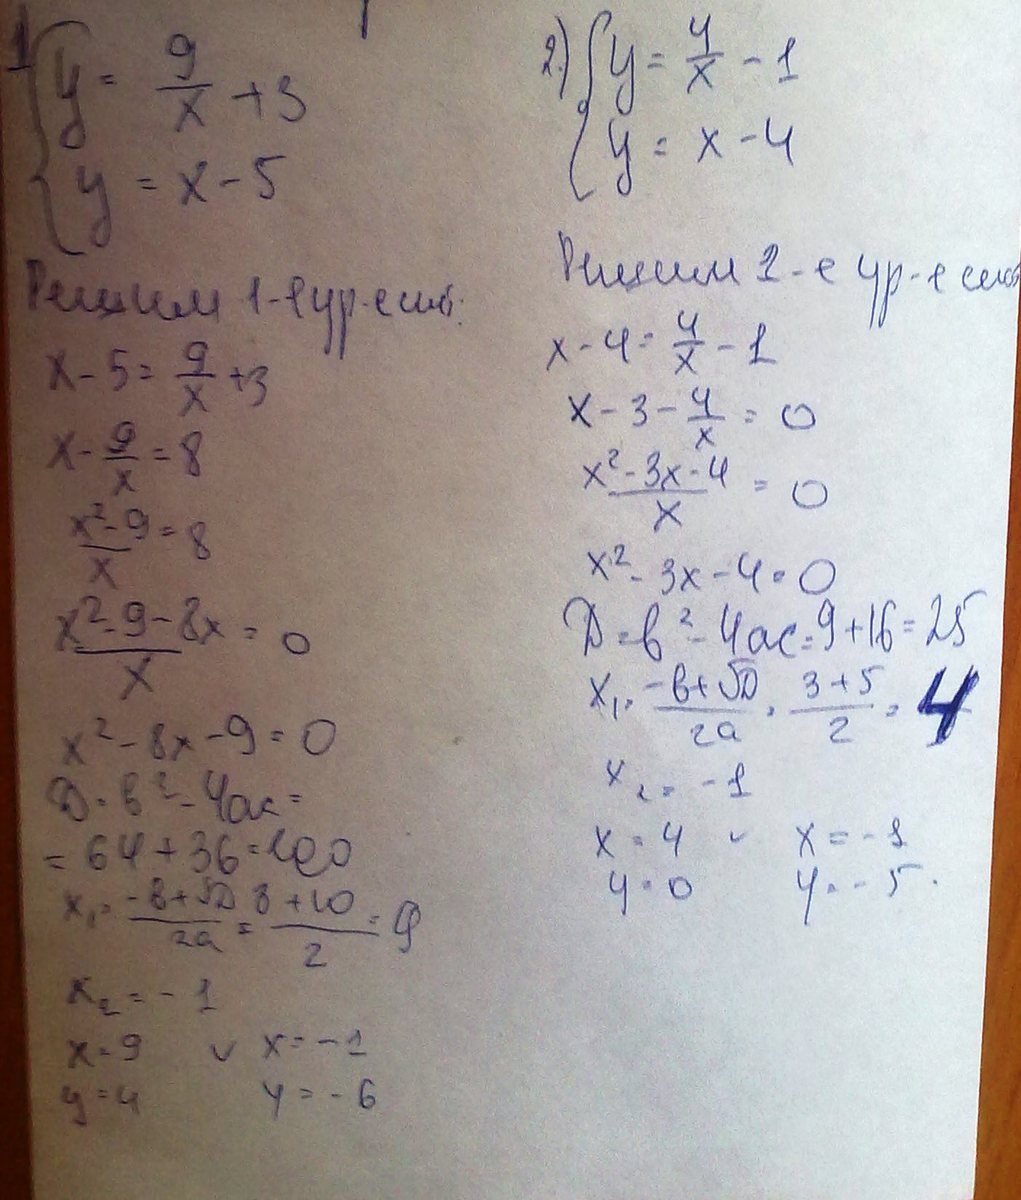 1 y = 9/x + 3
y = x - 5
Решим 1-е ур-е сист.:
x - 5 = 9/x + 3
x - 9/x = 8
x² - 9/x = 8
x² - 9 - 8x/x = 0
x² - 8x - 9 = 0
D = b² - 4ac =
= 64 + 36 = 100
x₁ = -b + √D/2a = 8 + 10/2 = 9
x₂ = - 1
x = 9 v x = - 1
y = 4 y = - 6
2.) y = 4/x - 1
y = x - 4
Решим 2-е ур-е сист
x - 4 = 4/x - 1
x - 3 - 4/x = 0
x² - 3x - 4/x = 0
x² - 3x - 4 = 0
D = b² - 4ac = 9 + 16 = 25
x₁ = -b + √D/2a = 3 + 5/2 = 4
x₂ = - 1
x = 4 v x = - 1
y = 0 y = - 5.